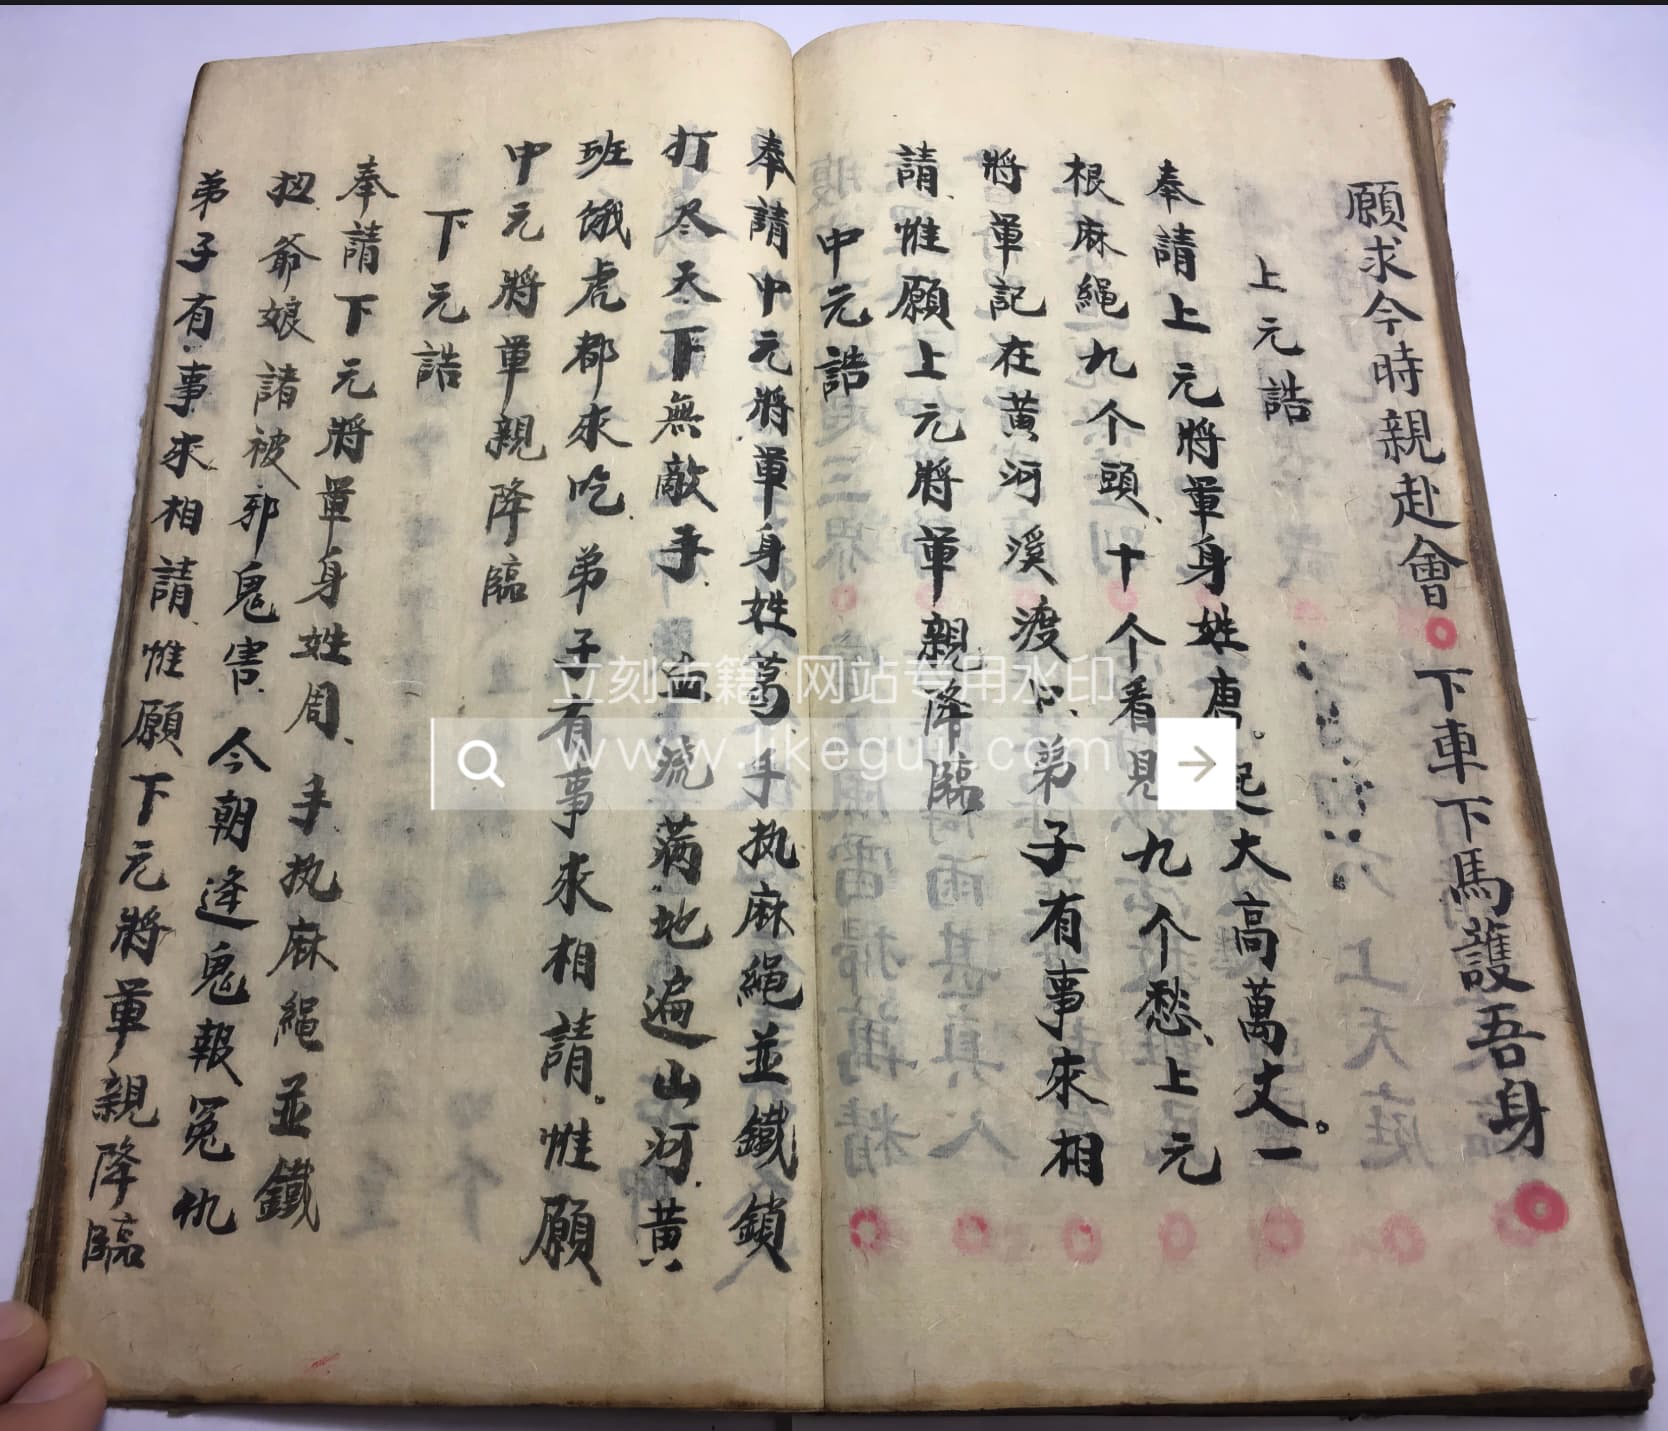 願求今時親赴會 下車下馬護吾身
上元誥
奉請上元將軍身姓唐。起大高萬丈。一
根麻繩九个頭、十个看見九个愁、上元
將軍記在黃河溪渡 弟子有事來相
請、惟願上元將軍親降臨
中元誥
奉請中元將軍身姓葛、手执麻繩並鐵鎖
打尽天下無敵手、血流萬地遍山河、黃
班饿虎都來吃、弟子有事來相請。惟願
中元將軍親降臨
下元誥
奉請下元將軍身姓周、手执麻繩並鐵
扭、爺娘請被邪鬼害、今朝逢鬼報冤仇
弟子有事來相請、惟願下元將軍親降臨
立刻古籍 网站专用水印
www.likeguji.com